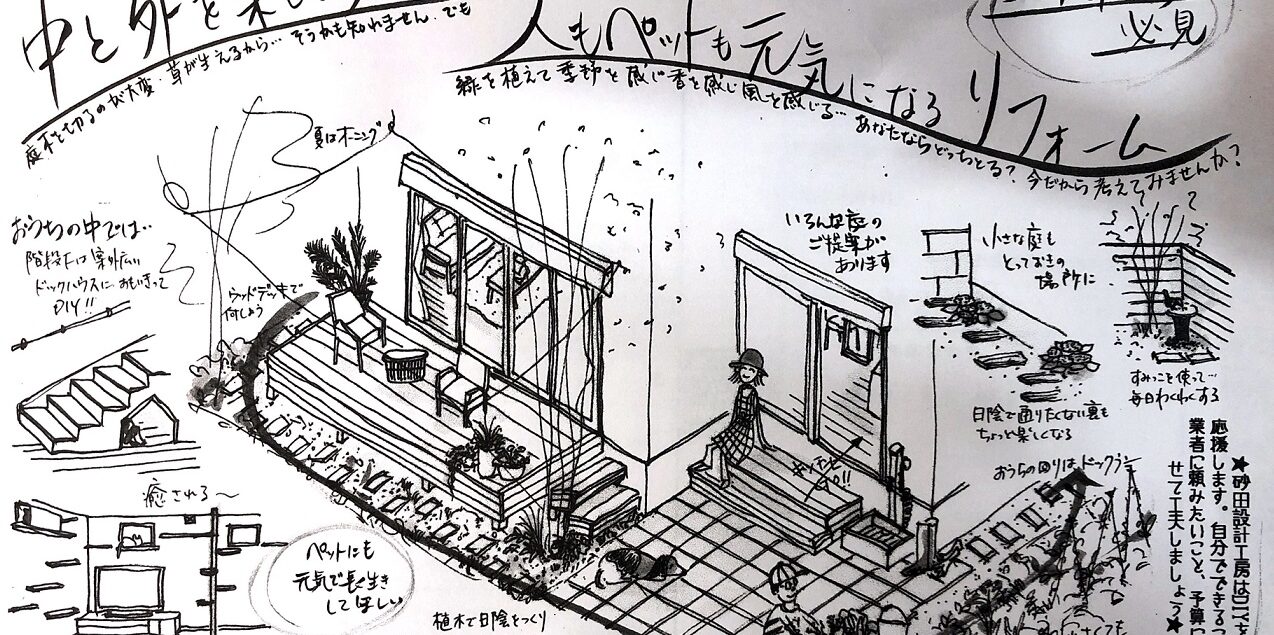 中と外を楽し
人もペットも元気になるリフォーム
必見
庭木を切るのが大変・草が生えるから… そうかも知れません。でも
緑を植えて季節を感じ香を感じ風を感じる… あなたならどっちとる？ 今だから考えてみませんか？
夏はオーニング
おうちの中では…
階段下は案外広い
ドックハウスに おもいきって
DIY!!
ウッドデッキで
何しよう
いろんな庭の
ご提案が
あります
小さな庭も
とっておきの
場所に
すみっこを使って…
毎日わくわくする
日陰で通りたくない裏も
ちょっと楽しくなる
おうちの回りはドックラン
キッチンと
癒される〜
ペットにも
元気で長く生き
してほしい
植木で日陰をつくり
★砂田設計工房は
応援します。自分でできる
業者に頼みたいこと、予算
せて工夫しましょう★